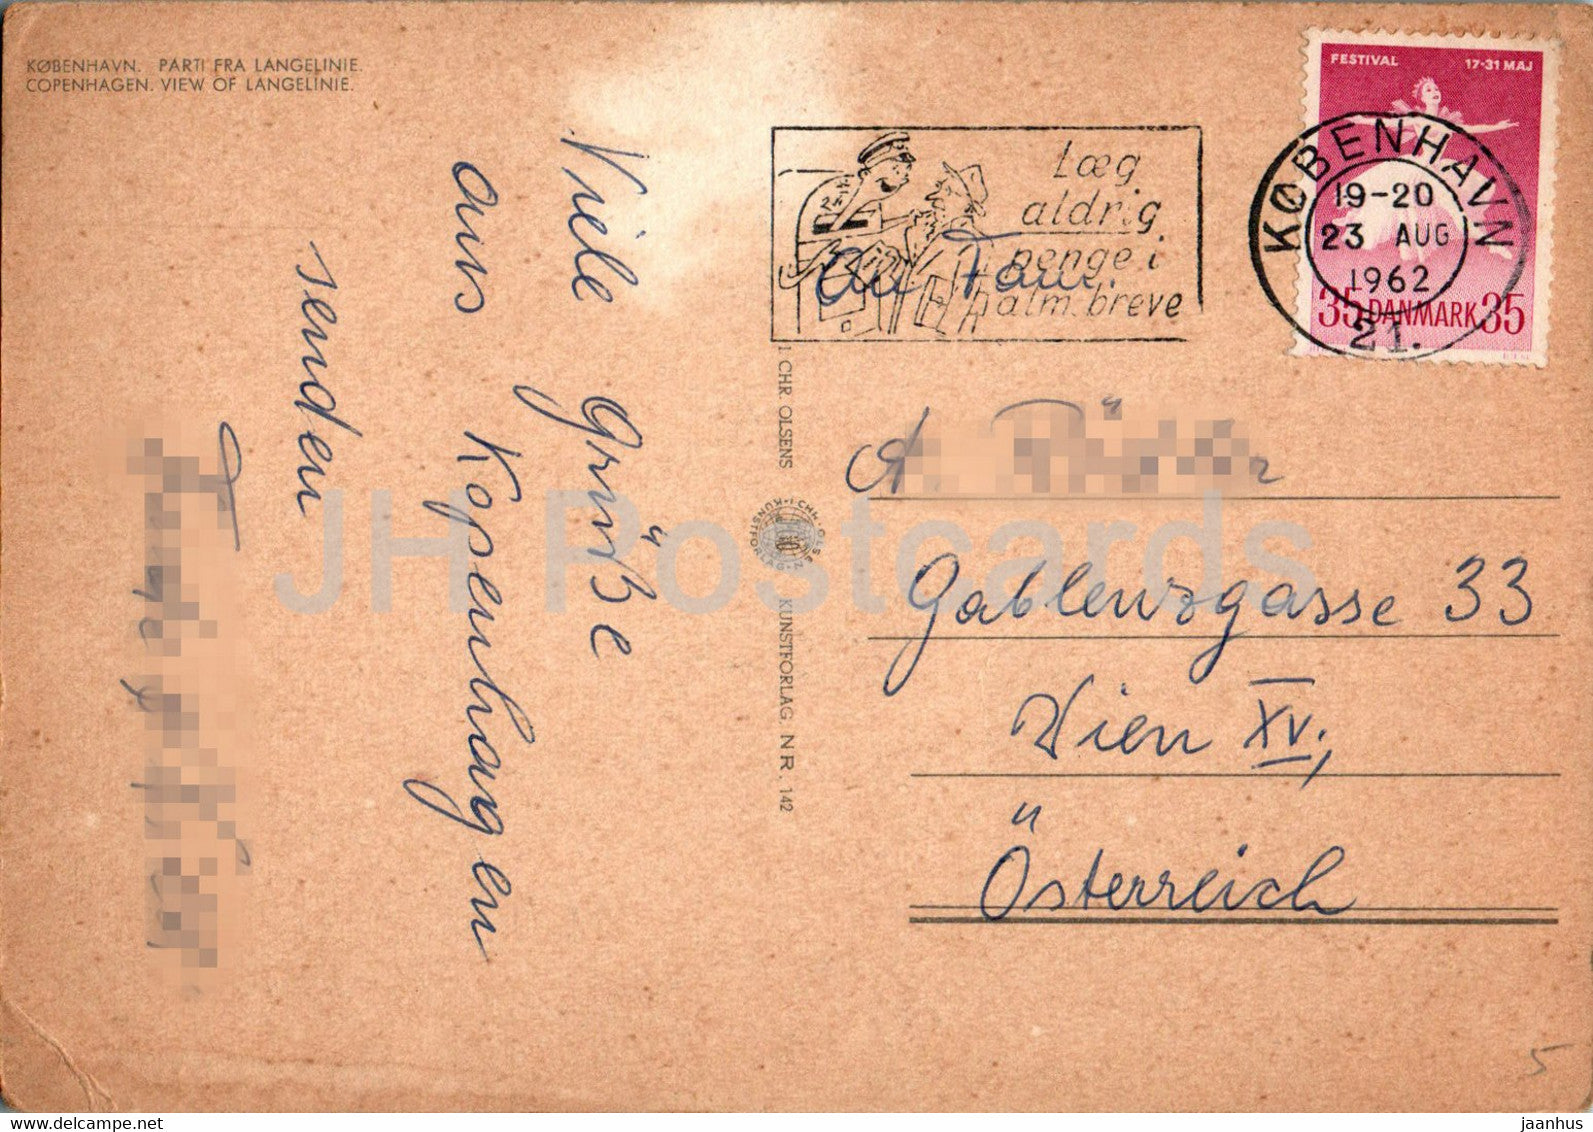 KØBENHAVN. PARTI FRA LANGELINIE.
COPENHAGEN. VIEW OF LANGELINIE.
Viele Grüße
aus Kopenhagen
senden
I CHR OLSENS KUNSTFORLAG. NR. 142
Læg
aldrig
penge i
alm. breve
FESTIVAL 17-31 MAJ
35 DANMARK 35
KØBENHAVN
19-20
23 AUG
1962
21.
An Fam.
A.
Gablenzgasse 33
Wien XV.,
Österreich
JH Postcards
5
www.delcampe.net
jaanhus